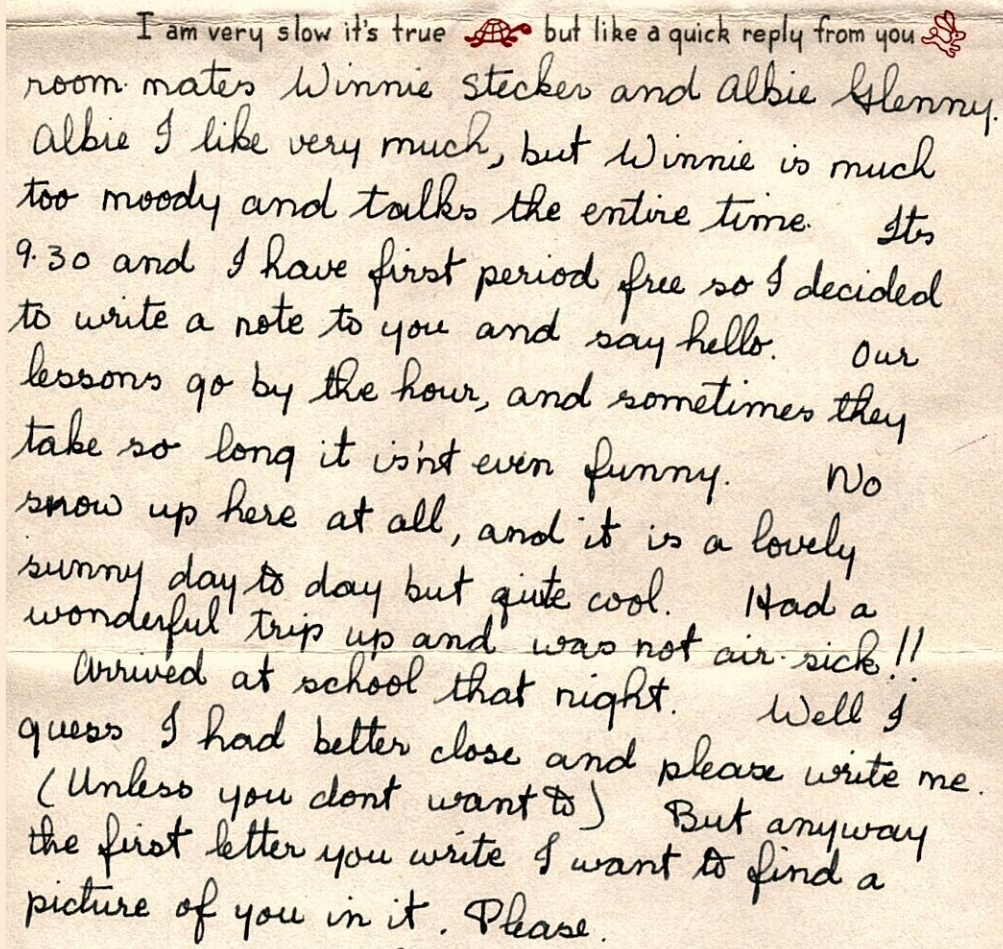 I am very slow it's true but like a quick reply from you
room mates Winnie Stecker and Albie Glenny.
Albie I like very much, but Winnie is much
too moody and talks the entire time. Its
9.30 and I have first period free so I decided
to write a note to you and say hello. Our
lessons go by the hour, and sometimes they
take so long it is'nt even funny. No
snow up here at all, and it is a lovely
sunny day to day but quite cool. Had a
wonderful trip up and was not air-sick!!
Arrived at school that night. Well I
guess I had better close and please write me.
(Unless you dont want to) But anyway
the first letter you write I want to find a
picture of you in it. Please.